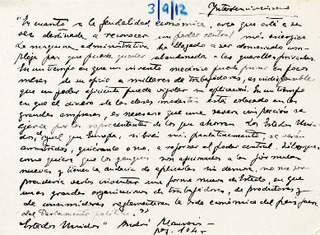 3/9/12
Intervencionismo
"En cuanto a la feudalidad económica, creo que está a
ser destinada a reconocer un poder central más enérgico
La máquina administrativa ha llegado a ser demasiado com-
pleja para que pueda quedar abandonada a los guardias privados.
En un tiempo en que un invento mecánico puede privar en pocos
meses de su oficio a millares de trabajadores, es indispensable
que un poder eficiente pueda vigilar su aplicación. En un tiempo
en que el dinero de las clases modestas está colocado en las
grandes empresas, es necesario que una severa inspección se
ejerza por los representantes de los que ahorran. Los Estados Unidos
igual que Europa, si bien más pacíficamente, se verán
arrastrados, quiéranlo o no, a reforzar el poder central.
como quiera que los yanquis son aficionados a las fórmulas
nuevas y tienen la audacia de aplicarlas sin demora, no me sor-
prendería verles inventar una forma nueva de Estado, en que
unas grandes organizaciones de trabajadores, de productores y
de consumidores reglamentaran la vida económica del país
del Parlamento político."
"Estados Unidos" André Maurois -
pág. 104 -